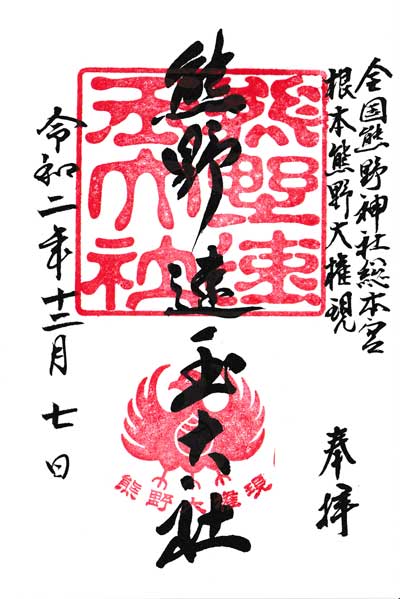 全国熊野神社総本宮
根本熊野大権現
奉拝
熊野速玉大社
令和二年十二月七日
熊野速玉大社
熊野大権現